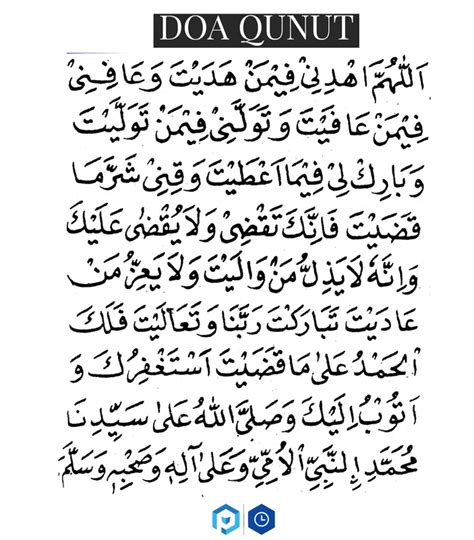 DOA QUNUT
اَللّٰهُمَّ اهْدِنِيْ فِيْمَنْ هَدَيْتَ وَعَافِنِيْ
فِيْمَنْ عَافَيْتَ وَتَوَلَّنِيْ فِيْمَنْ تَوَلَّيْتَ
وَبَارِكْ لِيْ فِيْمَا اَعْطَيْتَ وَقِنِيْ شَرَّمَا
قَضَيْتَ فَاِنَّكَ تَقْضِيْ وَلَا يُقْضٰى عَلَيْكَ
وَاِنَّهٗ لَا يَذِلُّ مَنْ وَالَيْتَ وَلَا يَعِزُّ مَنْ
عَادَيْتَ تَبَارَكْتَ رَبَّنَا وَتَعَالَيْتَ فَلَكَ
الْحَمْدُ عَلٰى مَا قَضَيْتَ اَسْتَغْفِرُكَ وَ
اَتُوْبُ اِلَيْكَ وَصَلَّى اللّٰهُ عَلٰى سَيِّدِنَا
مُحَمَّدِ اِلنَّبِيِّ الْاُمِّيِّ وَعَلٰى اٰلِهٖ وَصَحْبِهٖ وَسَلَّمَ